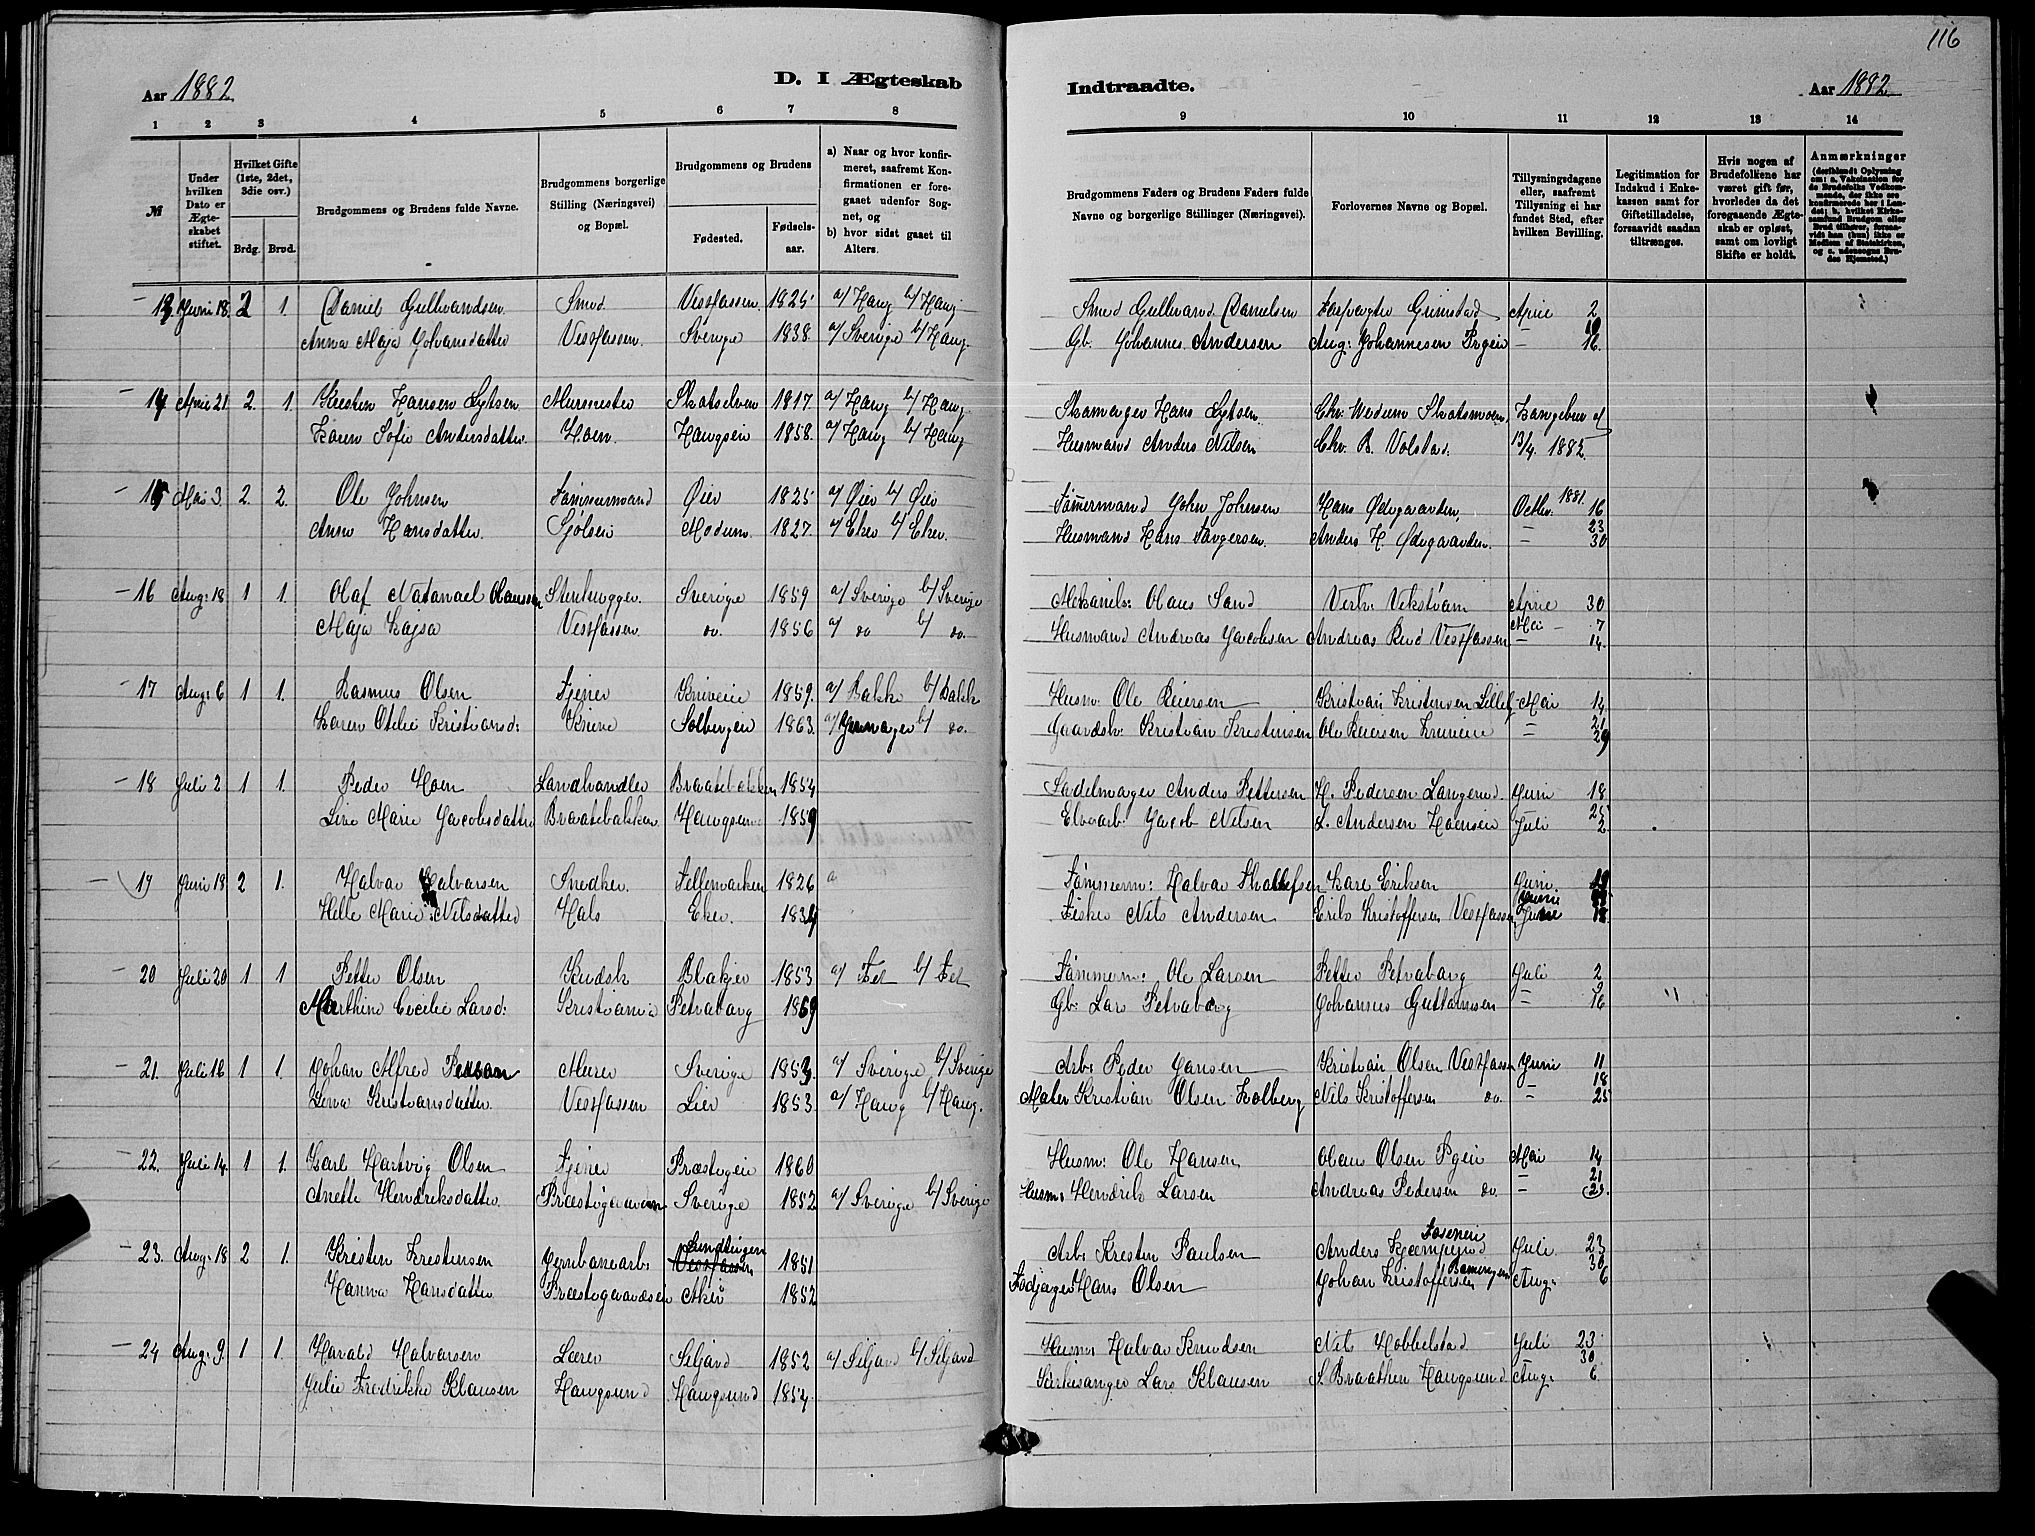 116
Aar 1882
D. I Ægteskab
Indtraadte.
Aar 1882.
1 2 3 4 5 6 7 8 9 10 11 12 13 14
№
Under hvilken Dato er Ægteskabet stiftet.
Hvilket Gifte (1ste, 2det, 3die osv.)
Brdg. Brud.
Brudgommens og Brudens fulde Navne.
Brudgommens borgerlige Stilling (Næringsvei) og Bopæl.
Brudgommens og Brudens
Fødested. Fødselsaar.
a) Naar og hvor konfirmeret, saafremt Konfirmationen er foregaaet udenfor Sognet, og
b) hvor sidst gaaet til Alters.
Brudgommens Faders og Brudens Faders fulde Navne og borgerlige Stillinger (Næringsvei).
Forlovernes Navne og Bopæl.
Tillysningsdagene eller, saafremt Tillysning ei har fundet Sted, efter hvilken Bevilling.
Legitimation for Indskud i Enkekassen samt for Giftetilladelse, forsaavidt saadan tiltrænges.
Hvis nogen af Brudefolkene har været gift før, hvorledes da det foregaaende Ægteskab er opløst, samt om lovligt Skifte er holdt.
Anmærkninger (deriblandt Oplysning om: a. Vaksination for de Brudefolks Vedkommende, der ikke ere konfirmerede her i Landet; b. hvilket Kirkesamfund Brudgom eller Brud tilhører, forsaavidt han (hun) ikke er Medlem af Statskirken, og c. udensogns Brudes Hjemsted.)
13 Juni 18. 2 1. Daniel Gulbrandsen Smed Vestfossen 1825 a/ Haug b/ Haug Smed Gulbrand Danielsen Grimstad April 2
Anna Maja Johansdatter Vestfossen. Sverige 1838. a/ Sverige b/ Haug. Gb. Johannes Andersen Aug: Johannesen — 16.
14 April 21 2. 1. Kresten Hansen Lytsen Murmester Skotselven 1817. a/ Haug b/ Haug Skomager Hans Lytsen Chr. Wedum Skotsmoen
Karen Sofie Andersdatter. Hoen. Haugsein 1858. a/ Haug b/ Haug Husmand Anders Nilsen Chr. B. Volstad. 13/4 1882.
15 Mai 3 2. 2. Ole Johnsen Tømmermand Øier 1825 a/ Øier b/ Øier Tømmermand John Johnsen Hans Ødegaarden, Octbr. 1881. 16
Anne Hansdatter. Modum. 1827. a/ Eker b/ Eker. Husmand Hans Anders H. Ødegaarden. — 23 30
16 Aug: 18 1 1. Olaf Natanael Olausson Stenhugger. Sverige 1859 a/ Sverige b/ Sverige Mekanik: Olaus Sand April 30
Maja Kajsa Vestfossen. do. 1856 a/ do b/ do. Husmand Andreas Jacobsen Andreas Rud Vestfossen Mai 7 — 14.
17 Aug: 6 1 1. Rasmus Olsen Tjener 1859. a/ Bakke b/ Bakke Husm: Ole Reiersen Kristian Kristensen Mai 14
Karen Otilie Kristiansd: Solbergein 1863. b/ do. Gaardsb: Kristian Kristensen Ole Reiersen — 21 29
18 Juli 2 1 1. Peder Hoen Landhandler Braatebakken 1854 Sadelmager Anders Pettersen H. Pedersen Langerud. Juni 18
Live Marie Jacobsdatter Braatebakken. Haugsund 1859 Elvearb: Jacob Nilsen L. Andersen Hoensein 25 Juli 2
19 Juni 18 2 1. Halvor Halvorsen Snedker. Tellemarken 1826 a Tømmerm: Halvor Thollefsen Kare Eriksen Juni.
Helle Marie Nilsdatter Hals Eker. 1834 Fisker Nils Andersen Erik Kristoffersen Vestfossen Juni 18
20 Juli 20 1 1 Petter Olsen Kudsk Blakjer 1853 a/ Fet b/ Fet Tømmerm: Ole Larsen Petter Petvaborg Juli 2
Marthine Cecilie Larsd: Kristiania Petvaborg 1859 Gb: Lars Petvaborg Johannes Guttormsen — 9 16
21. Juli 16 1 1. Johan Alfred Persson Murer Sverige 1853. a/ Sverige b/ Sverige Arb: Peder Jansen Kristian Olsen Vestfossen Juni 11
Lina Kristiansdatter. Vestfossen Lier 1853. a/ Haug b/ Haug. Maler Kristian Olsen Kolberg Nils Kristoffersen do. 18 — 25
22. Juli 14. 1 1. Karl Hartvig Olsen Tjener Præstegein 1860 Husm: Ole Hansen Olaus Olsen Pgein Mai 14
Anette Hendriksdatter. Præstegaarden Sverige 1852 a/ Sverige b/ Sverige Husm: Hendrik Larsen Andreas Pedersen do. — 21
23. Aug: 18 2 1. Kresten Krestensen Jernbanearb: Vestfossen 1851 Arb: Kresten Paulsen Anders Kjæmperud Juli 23
Hanna Hansdatter Præstegaardsein Aker 1852 Hans Olsen Johan Kristoffersen 30 Aug: 6
24 Aug: 9. 1 1. Harald Halvorsen Lærer Siljord 1852 a/ Siljord b/ Siljord Husm: Halvor Knudsen Nils Hobbelstad Juli 23.
Julie Fredrikke Klausen Haugsund Haugsund 1854. Kirkesanger Lars Klausen S. Braathen Haugsund 30 Aug: 6